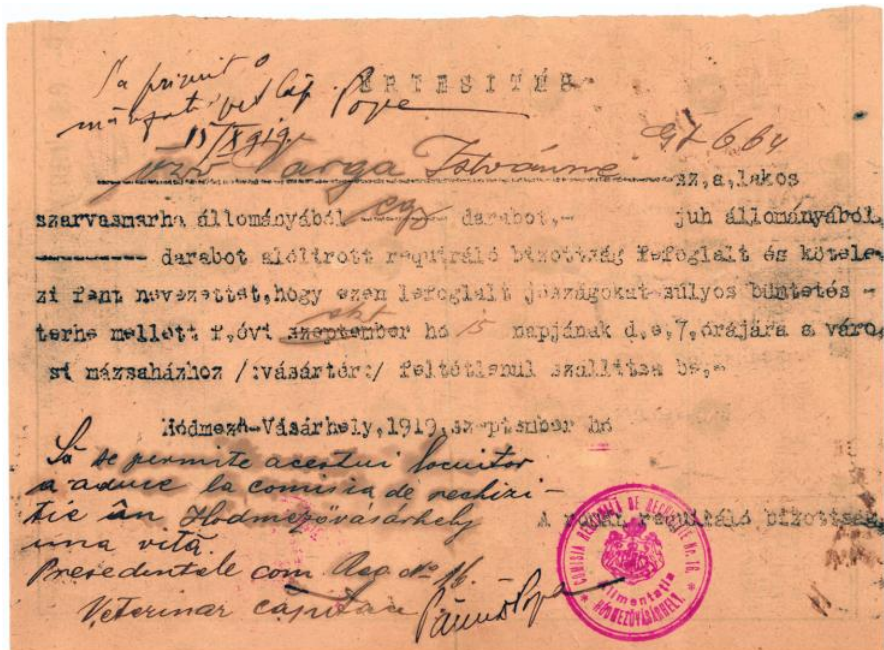 S'a primit o
vet Cap. Popa
ÉRTESITÉS
15/X 919.
özv Varga Istvánné sz,a,lakos
szarvasmarha állományából egy darabot,- juh állományából,
darabot alólirott requiráló bizottság lefoglalt és kötele-
zi fent nevezettet,hogy ezen lefoglalt jószágokat súlyos büntetés -
terhe mellett f,óvi szeptember okt hó 15 napjának d,e,7,órájára a váro,
si mázsaházhoz /:vásártér:/ feltétlenül szállitsa be,-
Hódmező-Vásárhely,1919,szeptember hó
Să se permite acestui locuitor
a aduce la comisia de rechizi-
tie ân Hodmezővásárhely
una vită.
Presedintele com Req No 16.
Veterinar capitan Popa
A román requiráló bizottság,
COMISIA REGIONALĂ DE RECHIZIȚIE Nr. 16.
Alimentatia
HÓDMEZŐVÁSÁRHELY.